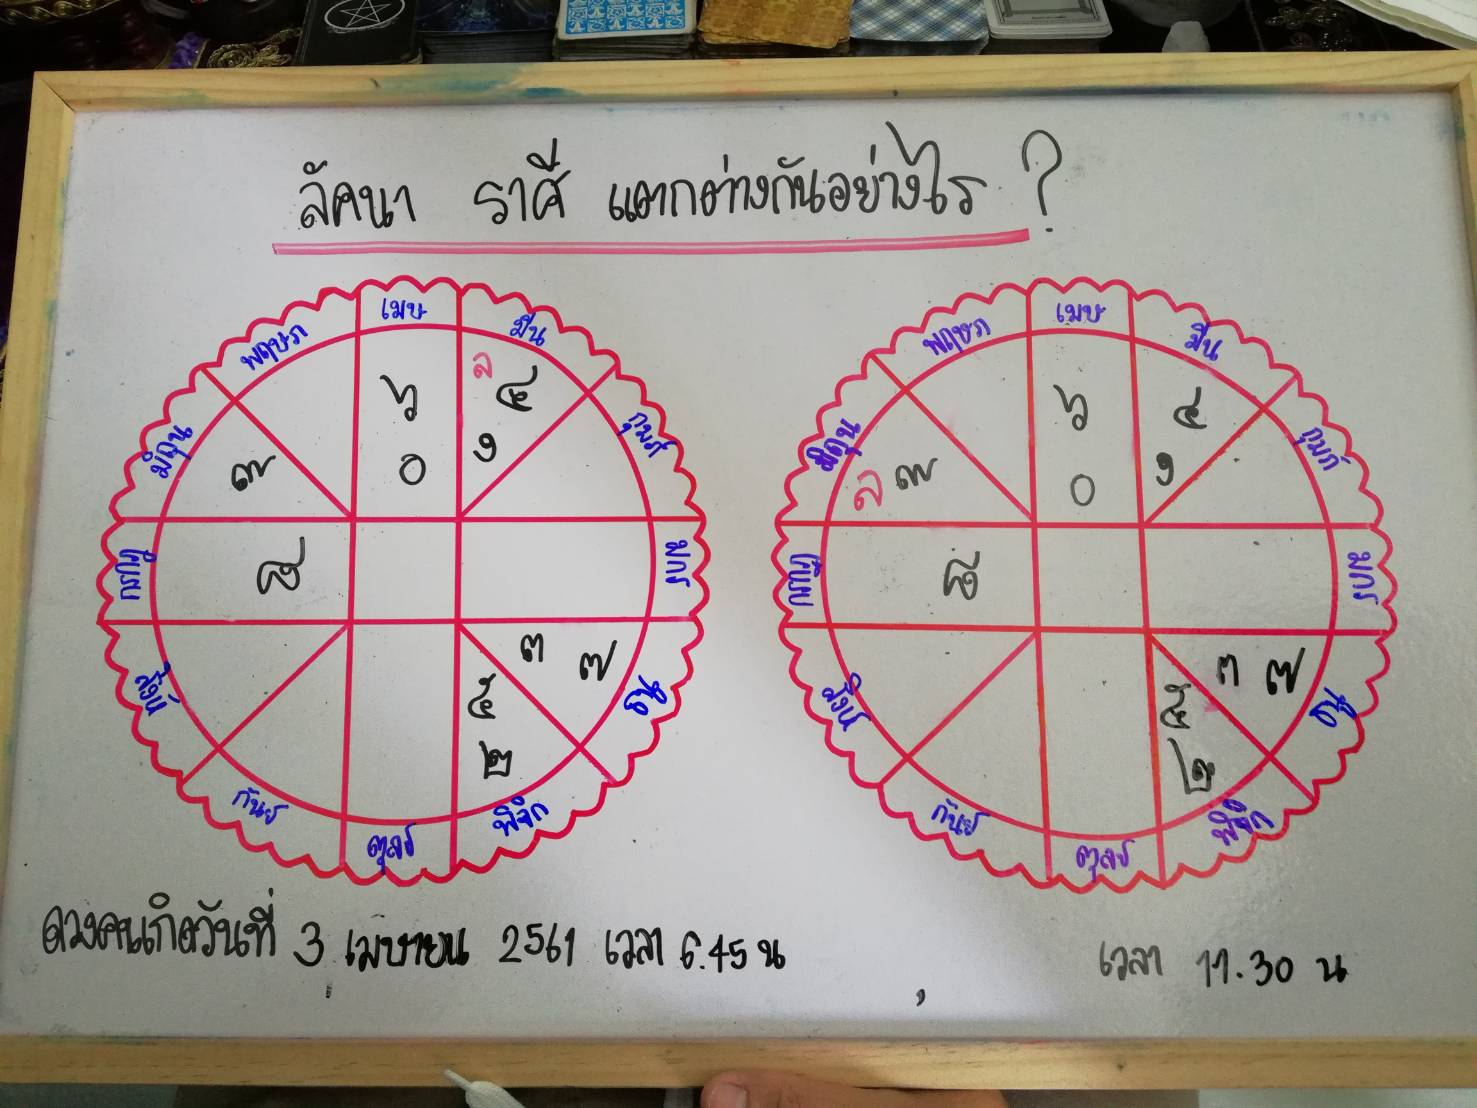 ลัคนา ราศี แตกต่างกันอย่างไร ?
เมษ
พฤษภ
มีน
ล
๖
๔
๐
๑
มิถุน
๗
กุมภ์
กรกฏ
๘
มกร
สิงห์
๓ ๗
ธนู
๕
๒
กันย์
ตุลย์
พิจิก
เมษ
พฤษภ
มีน
๖
๔
๐
๑
มิถุน
ล ๗
กุมภ์
๘
มกร
สิงห์
๓ ๗
ธนู
๕
๒
กันย์
ตุลย์
พิจิก
ดวงคนเกิดวันที่ 3 เมษายน 2561 เวลา 6.45 น
เวลา 11.30 น